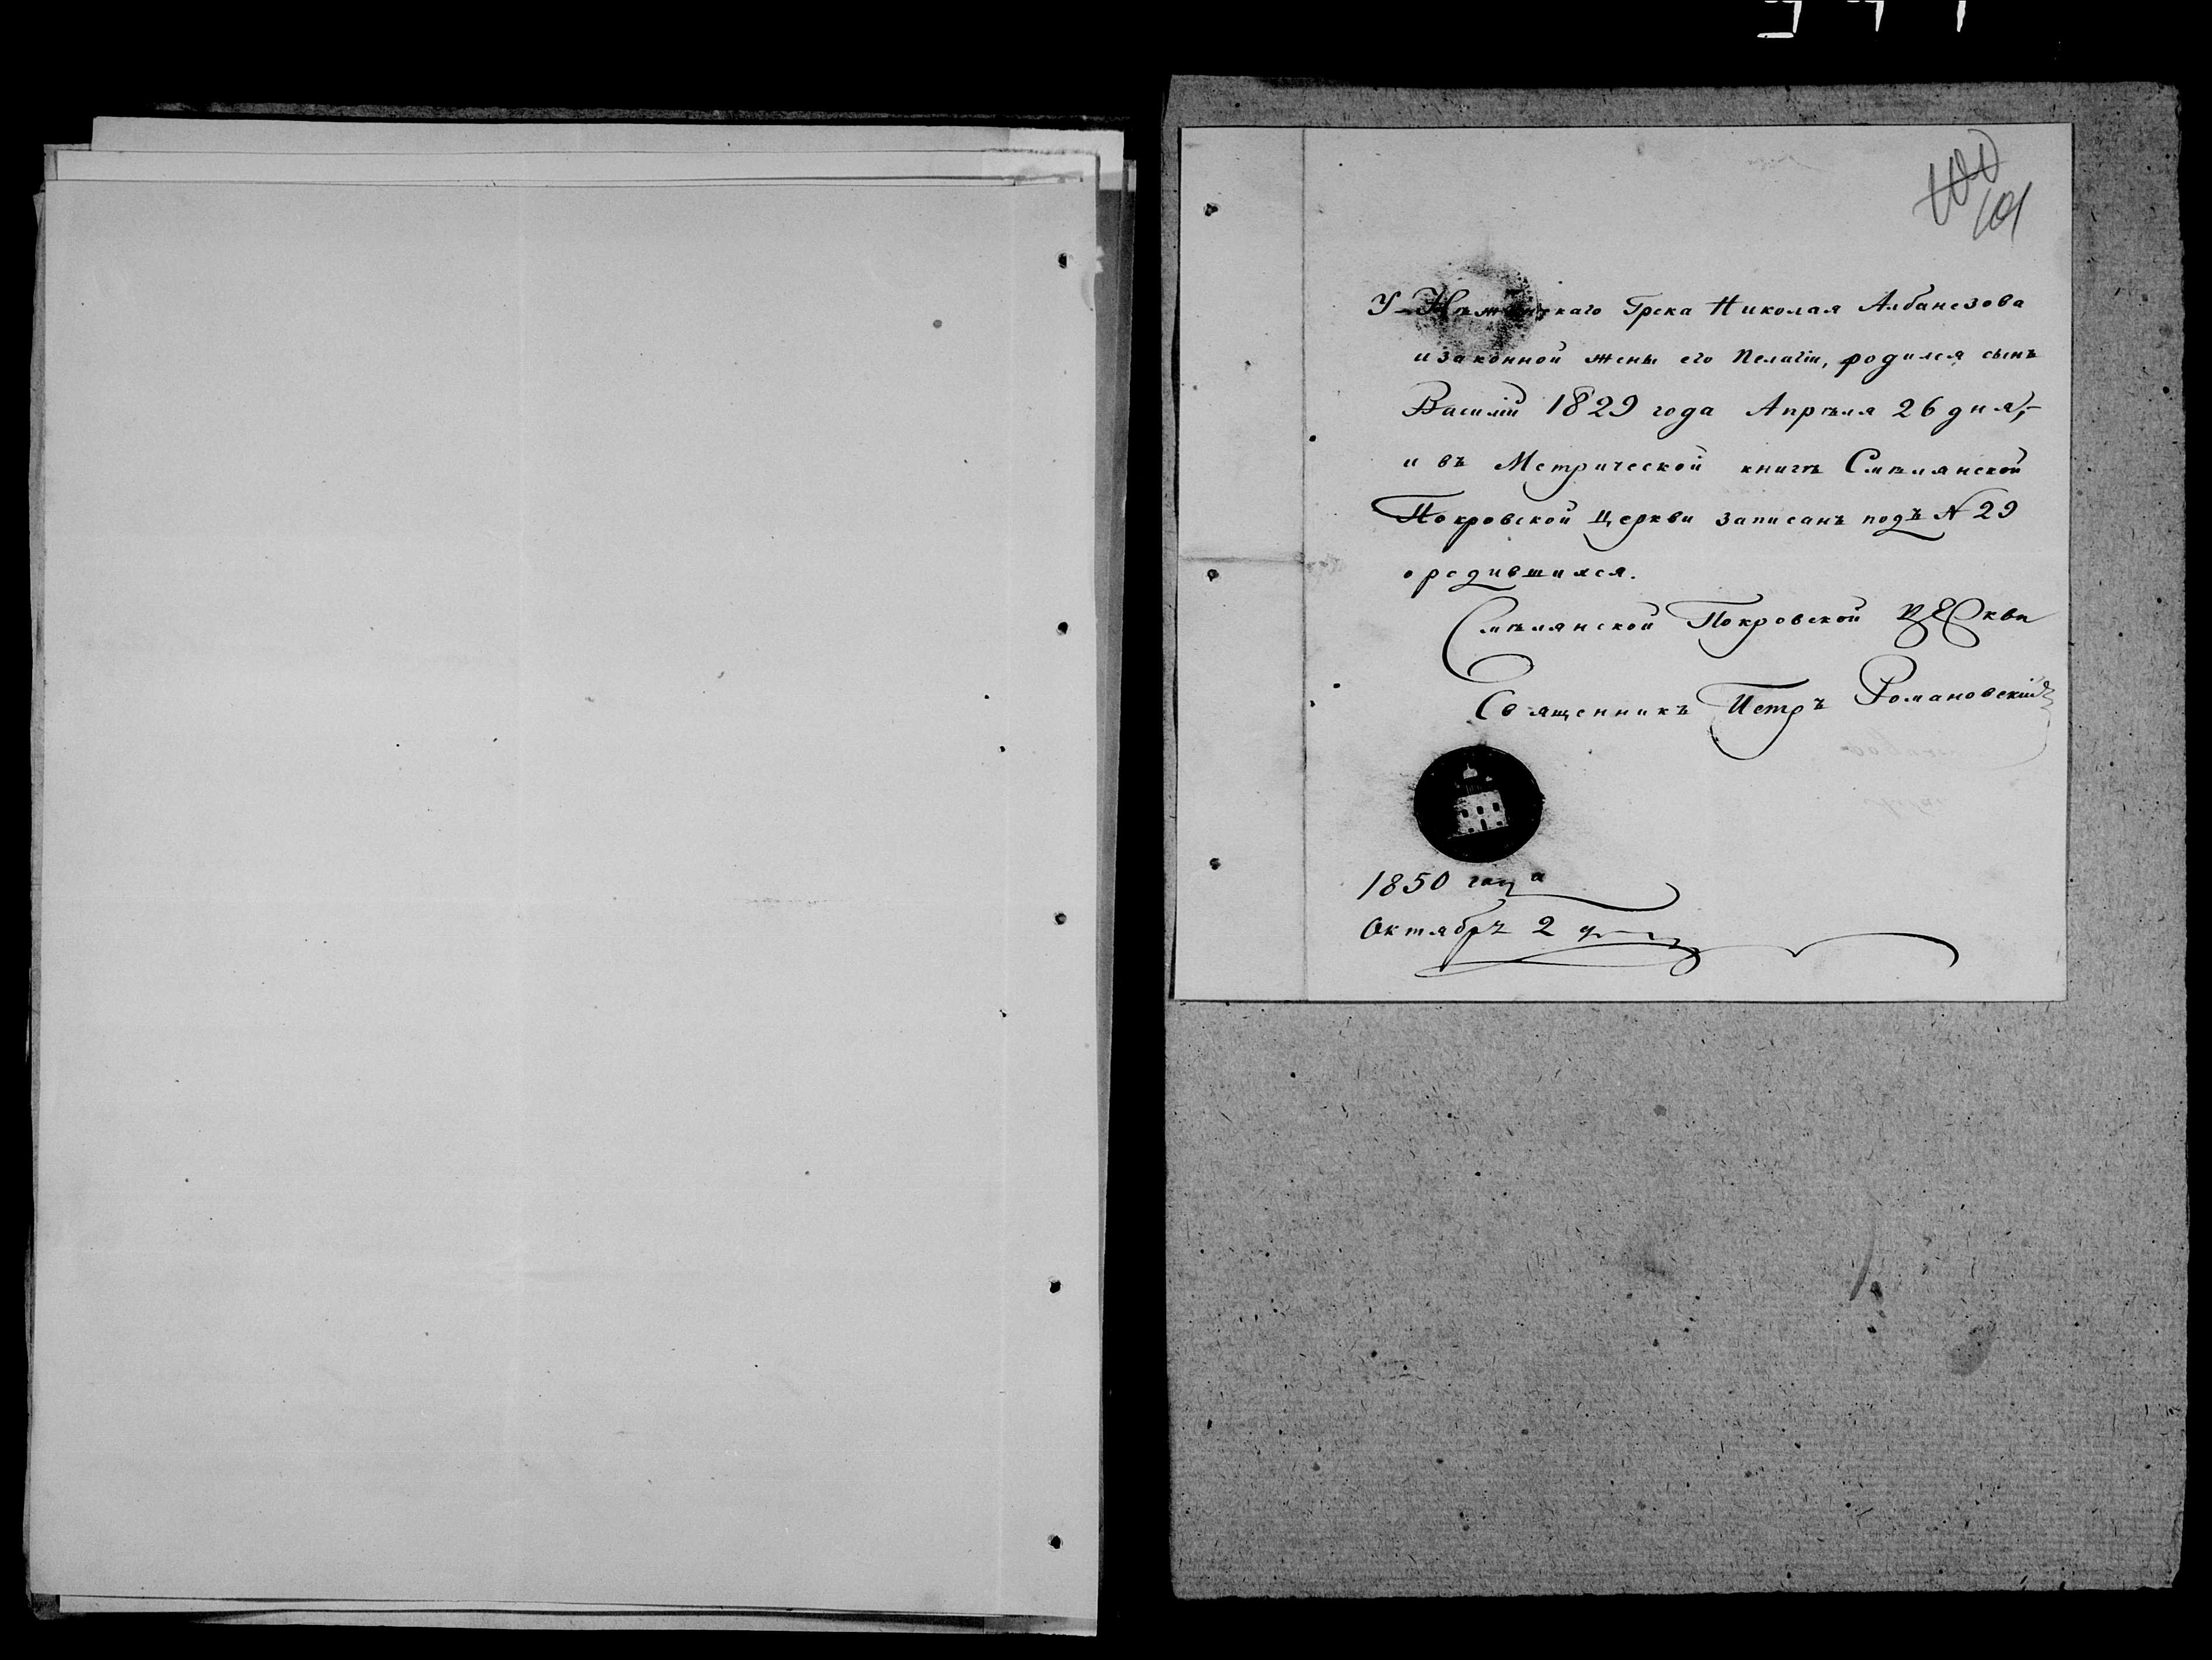 100
101
У Нѣжинскаго Грека Николая Албанезова
и законной жены его Пелагіи, родился сынъ
Василій 1829 года Апрѣля 26 дня,-
и въ Метрической книгѣ Смѣлянской
Покровской Церкви записанъ подъ N 29
о родившихся.
Смѣлянской Покровской Церкви
Священникъ Петръ Романовскій
1850 года
Октябръ 2 дня